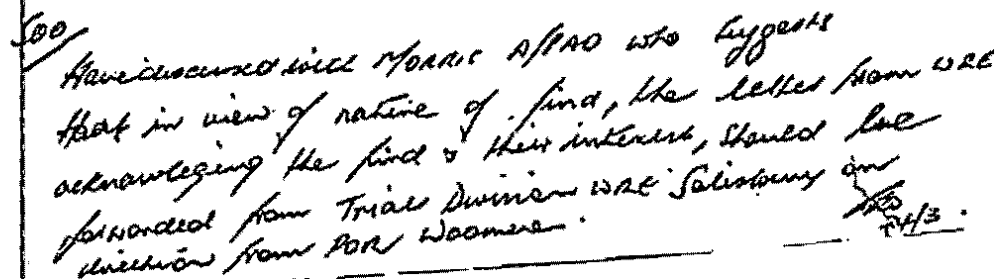 500/
Have discussed with MORRIS A/PAO who suggests
that in view of nature of find, the letter from WRE
acknowleging the find & their interest, should be
forwarded from Trials Division WRE Salisbury on
direction from POR Woomera.
4/3.